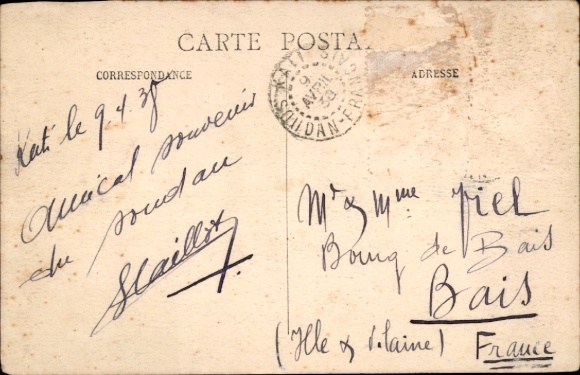 CARTE POSTA
CORRESPONDANCE
ADRESSE
KATI
9
AVRIL
SOUDAN-FRANÇAIS
Kati le 9.4.38
Amical souvenir
du soudan
Mr & Mme Viel
Bourg de Bais
Bais
(Ille & Vilaine) France